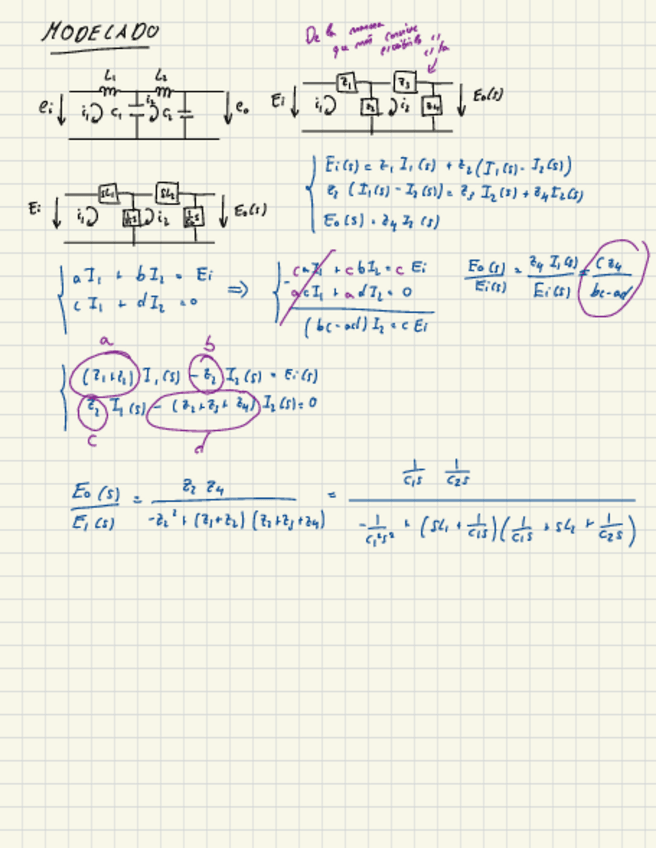 MODELADO
De la manera
que más
L₁ L₂
eᵢ i₁ C₁ i₂ C₂ eₒ
Ei i₁ z₁ z₂ i₂ z₃ z₄ Eo(s)
Ei(s) = z₁ I₁(s) + z₂ (I₁(s) - I₂(s))
z₂ (I₁(s) - I₂(s)) = z₃ I₂(s) + z₄ I₂(s)
Eo(s) = z₄ I₂(s)
Ei sL₁ i₁ sL₂ i₂ Eo(s)
a I₁ + b I₂ = Ei
c I₁ + d I₂ = 0
⇒
c a I₁ + c b I₂ = c Ei
- a c I₁ + a d I₂ = 0
(bc - ad) I₂ = c Ei
Eo(s)/Ei(s) = z₄ I₂(s)/Ei(s) = c z₄/(bc - ad)
a b
(z₁+z₂) I₁(s) - z₂ I₂(s) = Ei(s)
z₂ I₁(s) - (z₂+z₃+z₄) I₂(s) = 0
c d
Eo(s)/Ei(s) = z₂ z₄/(-z₂² + (z₁+z₂)(z₂+z₃+z₄)) = (1/C₁s 1/C₂s)/(-1/C₁²s² + (sL₁ + 1/C₁s)(1/C₁s + sL₂ + 1/C₂s))